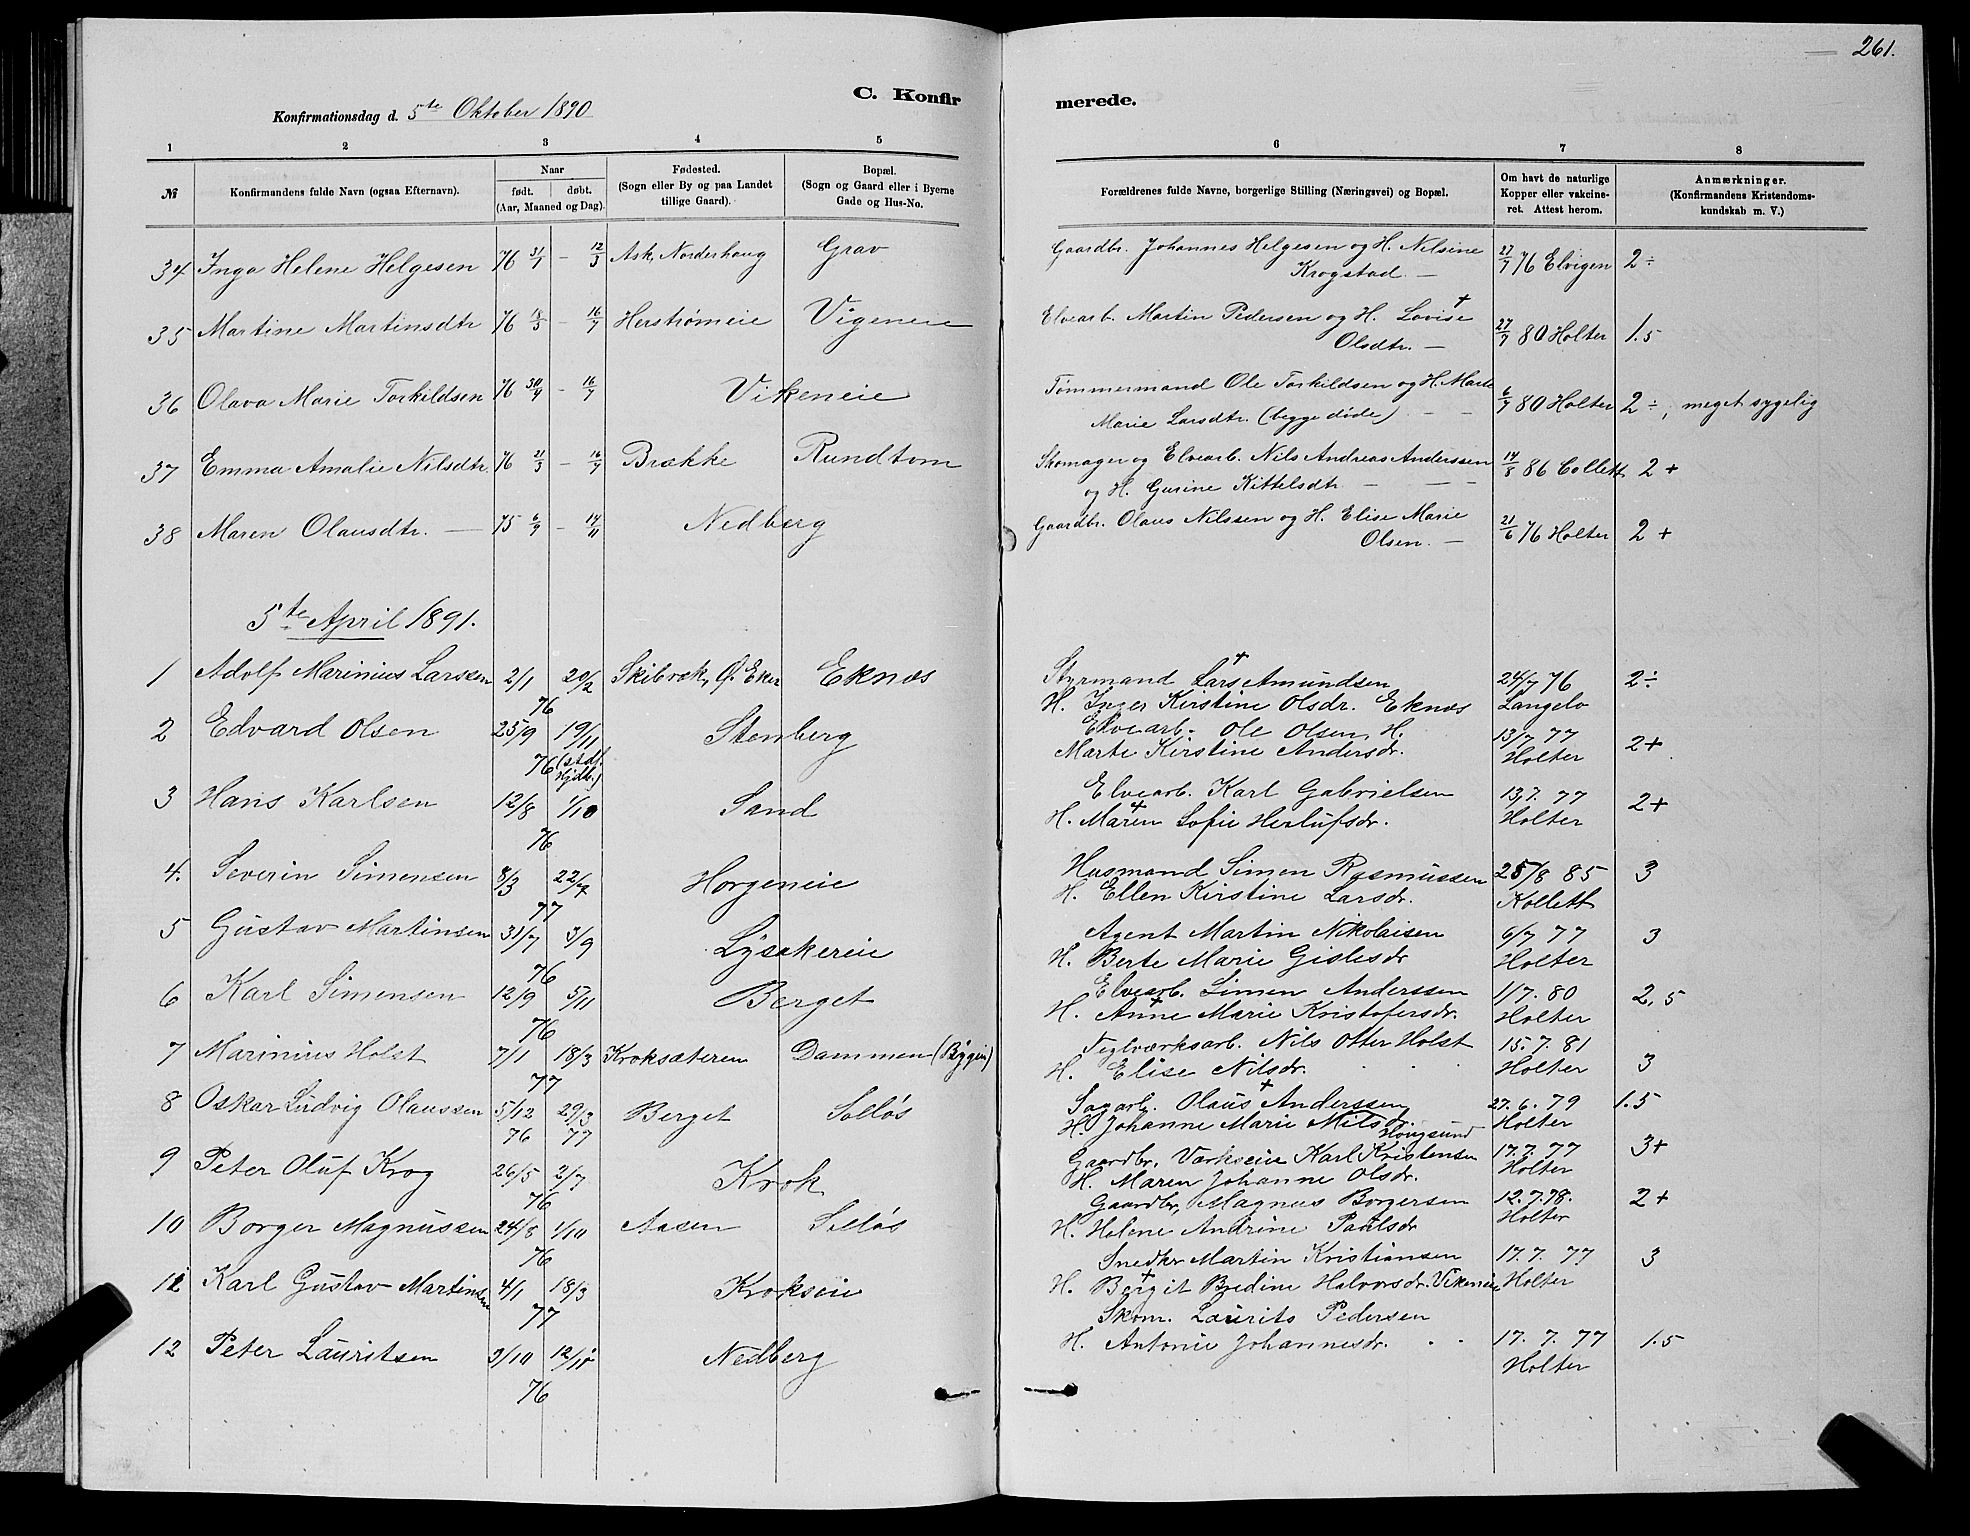 261.
C. Konfirmerede.
Konfirmationsdag d. 5te Oktober 1890
1 2 3 4 5 6 7 8
№ Konfirmandens fulde Navn (ogsaa Efternavn). Naar født. døbt. (Aar, Maaned og Dag). Fødested. (Sogn eller By og paa Landet tillige Gaard). Bopæl. (Sogn og Gaard eller i Byerne Gade og Hus-No. Forældrenes fulde Navne, borgerlige Stilling (Næringsvei) og Bopæl. Om havt de naturlige Kopper eller vakcineret. Attest herom. Anmærkninger. (Konfirmandens Kristendomskundskab m. V.)
34 Inga Helene Helgesen 76 31/1 – 12/3 Ask, Norderhoug Grav Gaardbr. Johannes Helgesen og H. Nilsine 27/7 76 Elvigen 2 ÷
Krogstad. —
35 Martine Martinsdtr 76 18/3 – 16/7 Herstrømeie Vigeneie Elvearb. Martin Pedersen og H. Lovise + 27/7 80 Holter 1.5
Olsdtr. —
36 Olava Marie Torkildsen 76 30/4 – 16/7 Vikeneie Tømmermand Ole Torkildsen og H. Marte 6/7 80 Holter 2 ÷, meget sygelig
Marie Larsdtr. (begge døde) — —
37 Emma Amalie Nilsdtr. 76 21/3 – 16/7 Brække Rundtom Skomager og Elvearb. Nils Andreas Anderssen 14/8 86 Collett 2 +
og H. Gurine Kittelsdtr — — —
38 Maren Olausdtr. — 75 6/9 – 14/11 Nedberg Gaardbr. Olaus Nilssen og H. Elise Marie 21/6 76 Holter 2 +
Olsen. —
5te April 1891.
1 Adolf Marinius Larssen 2/1 76 20/2 Skibvek, Ø. Eker Eknæs Styrmand Lars + Amundsen 24/7 76 2 ÷
H. Inger Kirstine Olsdr. Eknæs Langelo
2 Edvard Olsen 25/9 76 19/11 (st df. Hjdb.) Stenberg Elvearb. Ole Olsen, H. 13/7 77 2+
Marte Kirstine Andersdr. Holter
3 Hans Karlsen 12/8 76 1/10 Sand Elvearb. Karl Gabrielsen 13.7. 77 2+
H. Maren + Sofie Herlufsdr. Holter
4. Severin Simensen 8/3 77 22/7 Horgeneie Husmand Simen Rasmussen 25/8 85 3
H. Ellen Kirstine Larsdr. Kollett
5 Gustav Martinsen 31/7 76 3/9 Lysakereie Agent Martin Nikolaisen 6/7 77 3
H. Berte Marie Gislesdr Holter
6 Karl Simensen 12/9 76 5/11 Berget Elvearb. Simen Anderssen 1/7. 80 2,5
H. Anne + Marie Kristofersdr. Holter
7 Marinius Holst 7/1 77 18/3 Kroksæteren Dammen (Bygin) Teglværksarb. Nils Otter Holst 15. 7. 81 3
H. Elise Nilsdr. Holter
8 Oskar Ludvig Olaussen 5/12 76 29/3 77 Berget Solløs Sagarb. Olaus + Anderssen 27. 6. 79 1.5
H. Johanne Marie Nilsdr. Holter
9 Peter Oluf Krog 26/5 76 2/7 Krok Gaardbr. Værkseie Karl Kristensen Hougsund 17. 7. 77 3+
H. Maren Johanne Olsdr. Holter
10 Borger Magnussen 24/8 76 1/10 Aasen Solløs Gaardbr. Magnus Borgersen 12. 7. 78. 2 +
H. Helene Andrine Paulsdr Holter
11 Karl Gustav Martinsen 4/1 77 18/3 Krokseie Snedker Martin Kristiansen 17. 7. 77 3
H. Bergit + Bredine Halvorsdr. Vikeneie Holter
12 Peter Lauritsen 3/10 76 12/11 Nedberg Skom. Laurits Pedersen
H. Antonie Johannesdr. 17. 7. 77 1.5
Holter